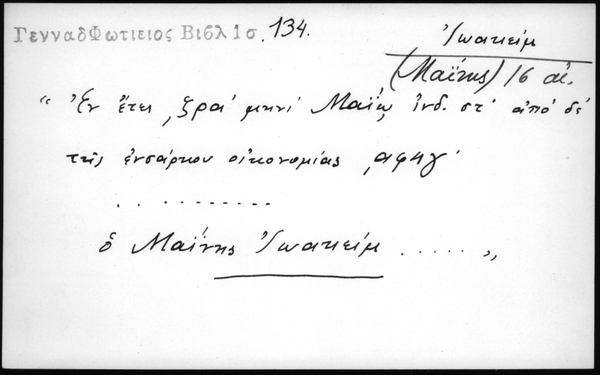 ΓενναδΦωτιειος Βιβλ 1σ. 134.
Ἰωακείμ
(Μαΐνης) 16 αἰ.
“ Ἐν ἔτει ͵ζρα΄ μηνὶ Μαΐῳ ἰνδ. στ΄ ἀπὸ δέ
τῆς ἐνσάρκου οἰκονομίας ͵αφηγ΄
. . . . . . . . . . .
ὁ Μαΐνης Ἰωακείμ . . . . . „